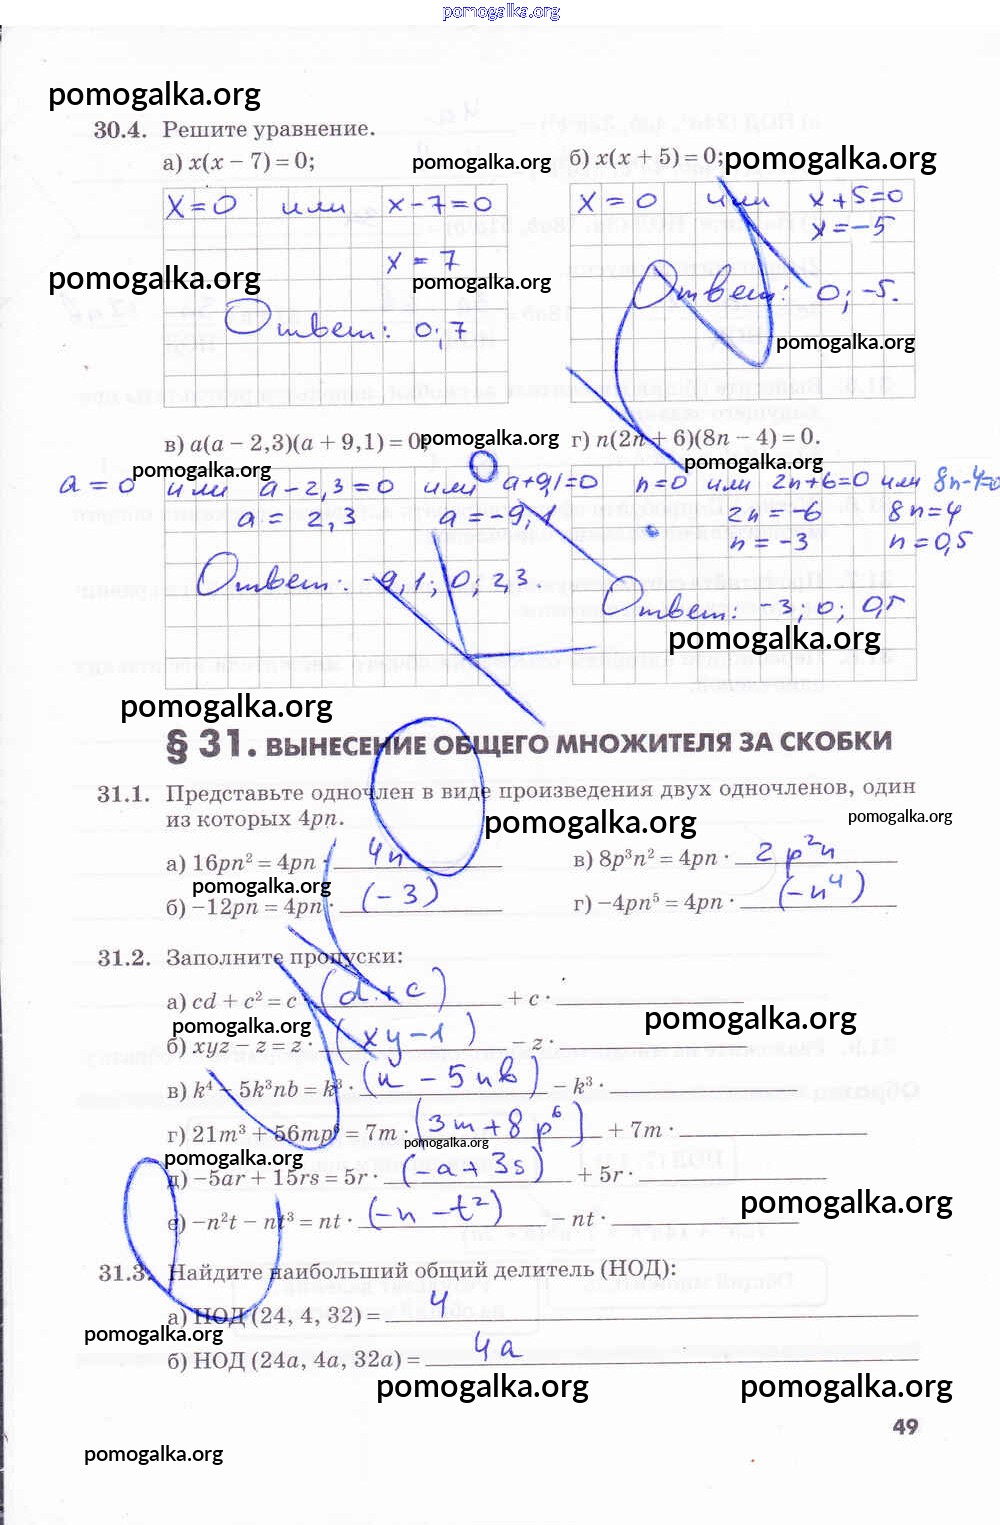 pomogalka.org
pomogalka.org
30.4. Решите уравнение.
а) x(x − 7) = 0; pomogalka.org б) x(x + 5) = 0; pomogalka.org
x = 0 или x − 7 = 0 x = 0 или x + 5 = 0
x = −5
x = 7
pomogalka.org pomogalka.org
Ответ: 0; −5.
Ответ: 0; 7
pomogalka.org
в) a(a − 2,3)(a + 9,1) = 0; pomogalka.org г) n(2n + 6)(8n − 4) = 0.
pomogalka.org pomogalka.org
a = 0 или a − 2,3 = 0 или a + 9,1 = 0 n = 0 или 2n + 6 = 0 или 8n − 4 = 0
a = 2,3 a = −9,1 2n = −6 8n = 4
n = −3 n = 0,5
Ответ: −9,1; 0; 2,3.
Ответ: −3; 0; 0,5
pomogalka.org
pomogalka.org
§ 31. ВЫНЕСЕНИЕ ОБЩЕГО МНОЖИТЕЛЯ ЗА СКОБКИ
31.1. Представьте одночлен в виде произведения двух одночленов, один
из которых 4pn.
pomogalka.org pomogalka.org
а) 16pn² = 4pn · 4n в) 8p³n² = 4pn · 2p²n
pomogalka.org
б) −12pn = 4pn · (−3) г) −4pn⁵ = 4pn · (−n⁴)
31.2. Заполните пропуски:
а) cd + c² = c · (d + c) + c ·
pomogalka.org pomogalka.org
б) xyz − z = z · (xy − 1) − z ·
в) k⁴ − 5k³nb = k³ · (k − 5nb) − k³ ·
г) 21m³ + 56mp⁶ = 7m · (3m + 8p⁶) + 7m ·
pomogalka.org
pomogalka.org
д) −5ar + 15rs = 5r · (−a + 3s) + 5r ·
pomogalka.org
е) −n²t − nt³ = nt · (−n − t²) − nt ·
31.3. Найдите наибольший общий делитель (НОД):
а) НОД (24, 4, 32) = 4
pomogalka.org
б) НОД (24a, 4a, 32a) = 4a
pomogalka.org pomogalka.org
49
pomogalka.org